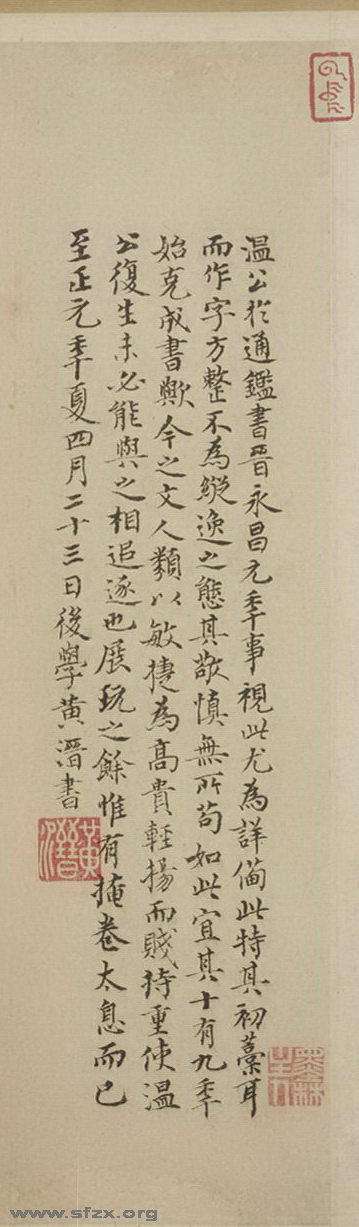 温公於通鑑書晉永昌元秊事視此尤為詳俻此特其初藳耳
而作字方整不為縱逸之態其敬慎無所苟如此宜其十有九秊
始克成書歟今之文人類以敏捷為高貴輕揚而賤持重使温
公復生未必能與之相追逐也展玩之餘惟有掩卷太息而已
至正元秊夏四月二十三日後學黄溍書
黄溍
www.sfzx.org